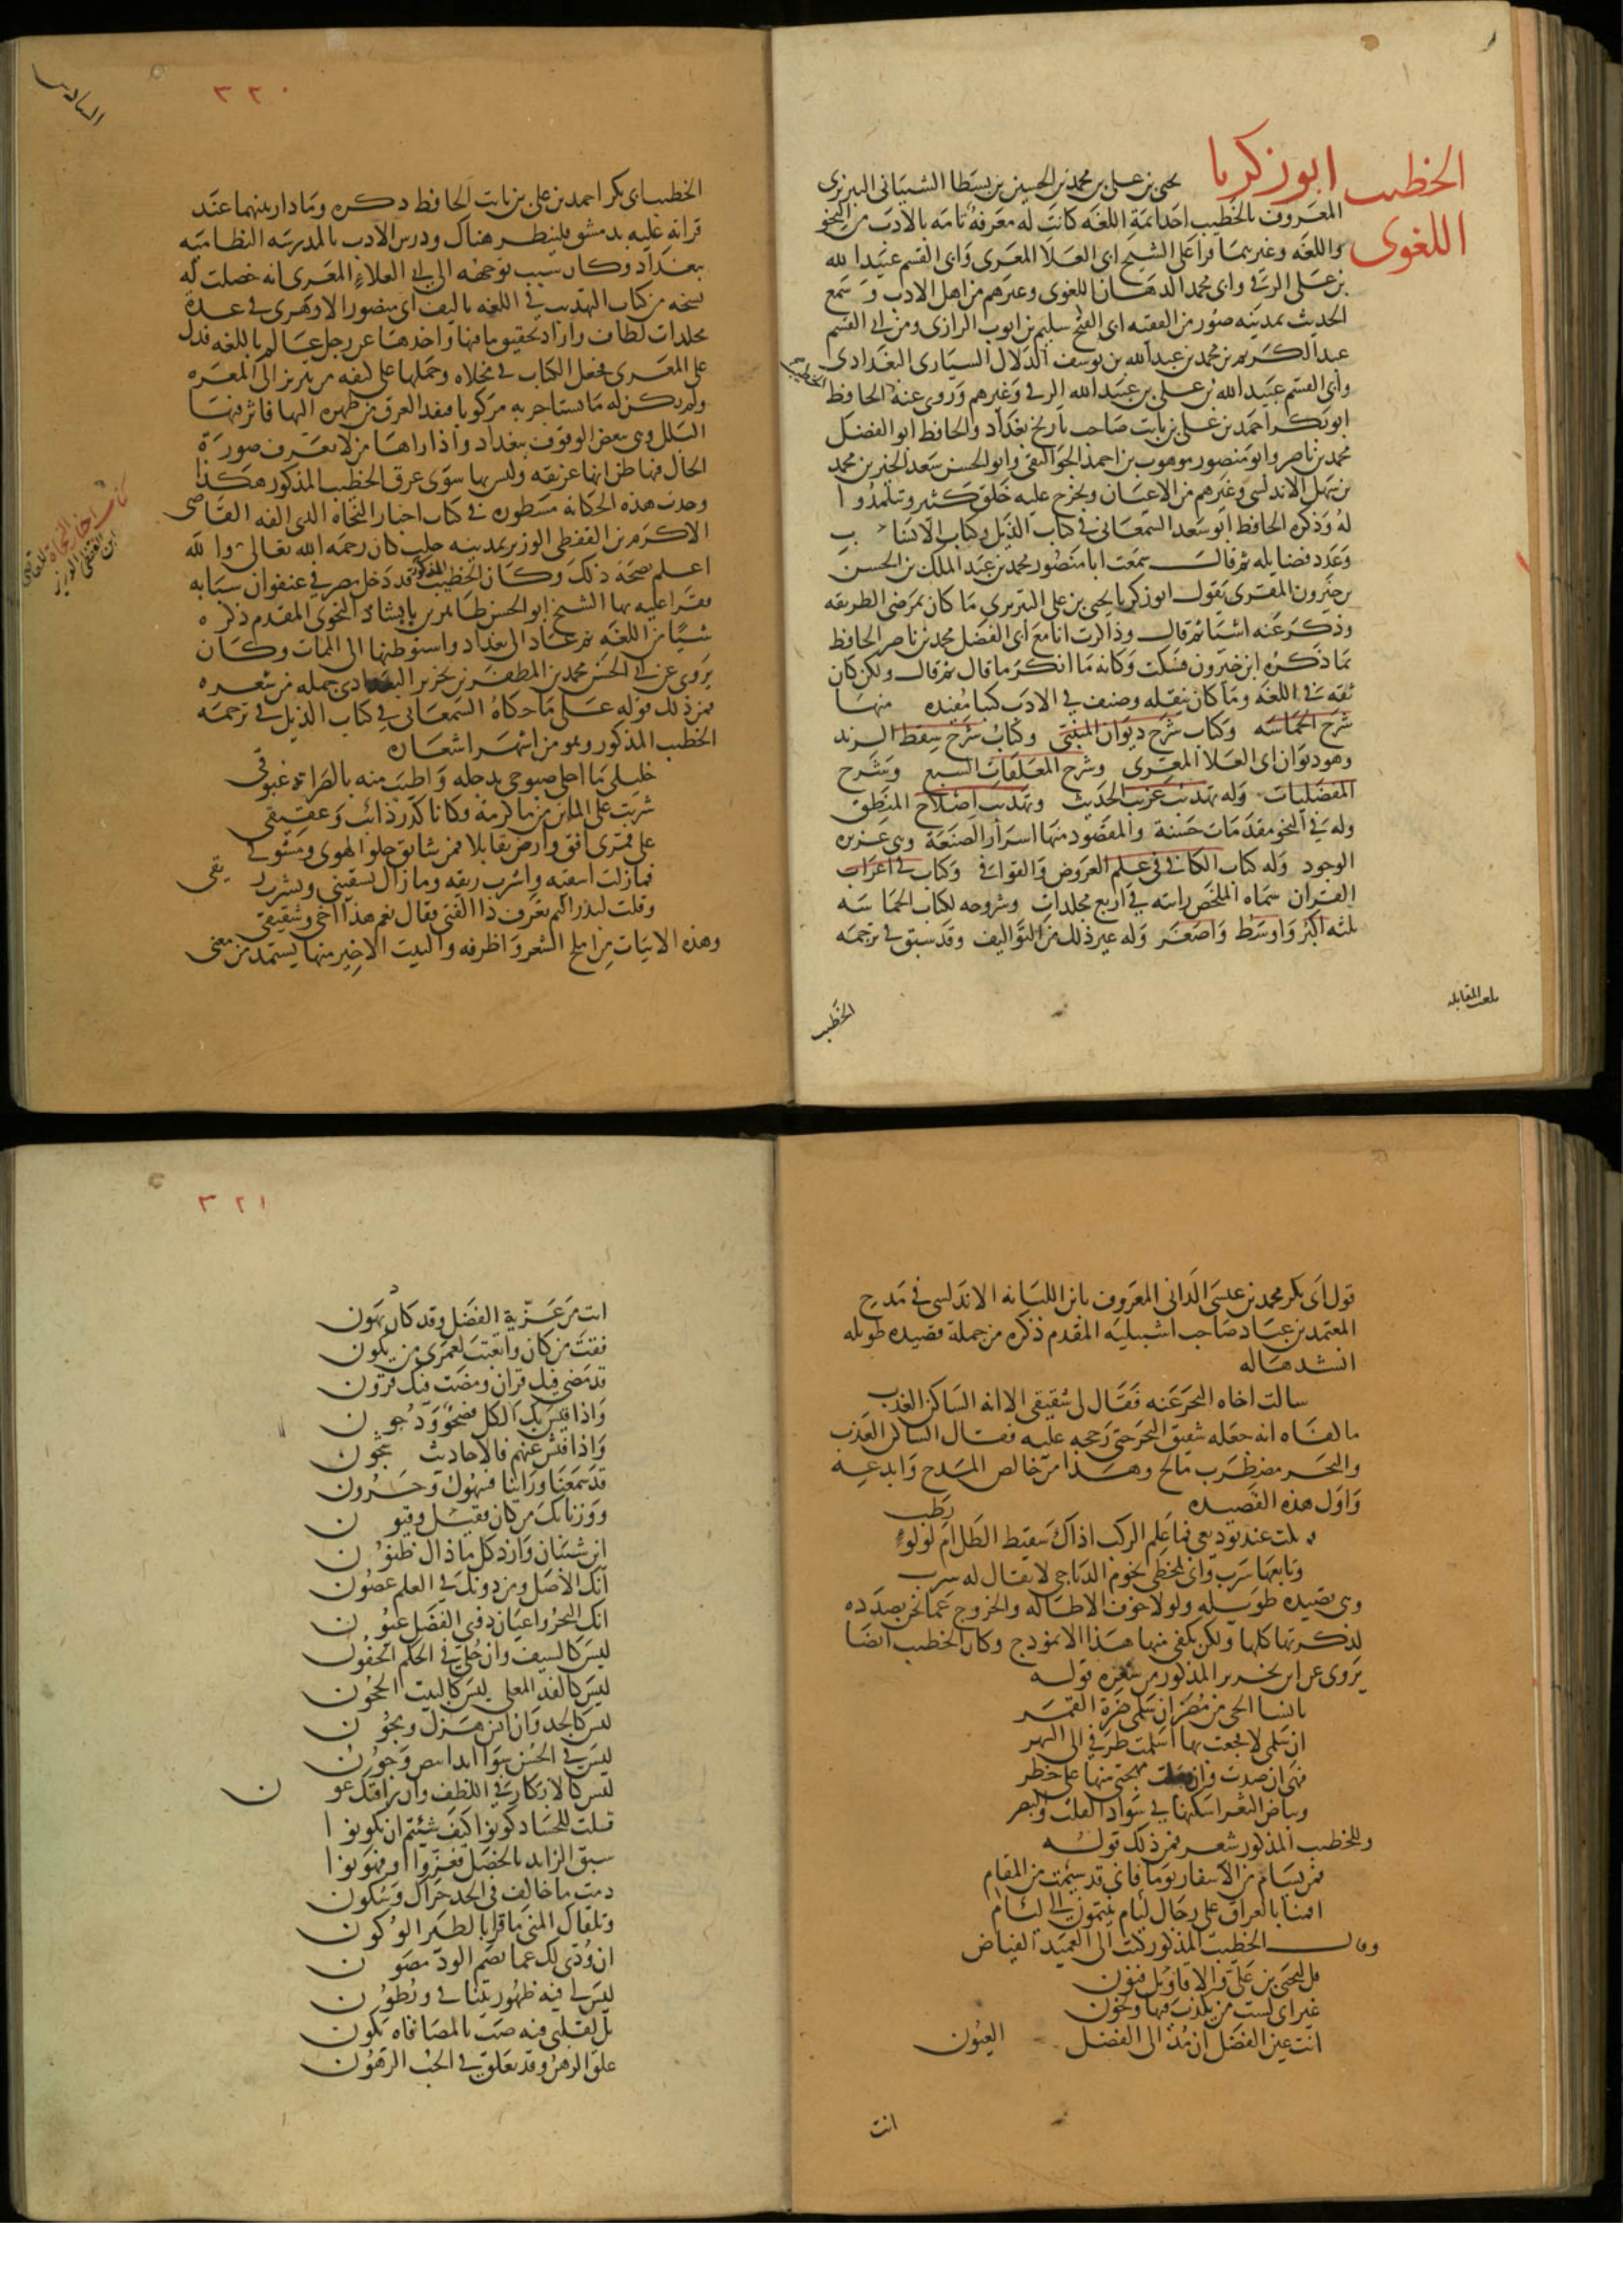 الخطيب ابو زكريا يحيى بن على بن محمد بن الحسين بن بسطا الشيبانى التبريزى
اللغوى
المعروف بالخطيب احد ايمة اللغه كانت له معرفة تامه بالادب من النحو
واللغه وغيرهما قرا على الشيخ ابى العلا المعرى وابى القسم عبيد الله
بن على الرقى وابى محمد الدهان اللغوى وغيرهم من اهل الادب وسمع
الحديث بمدينه صور من الفقيه ابى الفتح سليم بن ايوب الرازى ومن ابى القسم
عبد الكريم بن محمد بن عبد الله بن يوسف الدلال السيارى البغدادى
وابى القسم عبيد الله بن على بن عبيد الله الرقى وغيرهم وروى عنه الحافظ
الخطيب
ابو بكر احمد بن على بن ثابت صاحب تاريخ بغداد والحافظ ابو الفضل
محمد بن ناصر وابو منصور موهوب بن احمد الجواليقى وابو الحسن سعد الخير بن محمد
بن سهل الاندلسى وغيرهم من الاعيان وتخرج عليه خلق كثير وتلمذوا
له وذكره الحافظ ابو سعد السمعانى فى كتاب الذيل وكتاب الانساب
وعدد فضايله ثم قال سمعت ابا منصور محمد بن عبد الملك بن الحسن
بن خيرون المقرى يقول ابو زكريا يحيى بن على التبريزى ما كان بمرضى الطريقه
وذكر عنه اشيا ثم قال وذاكرت انا مع ابى الفضل محمد بن ناصر الحافظ
بما ذكره ابن خيرون فسكت وكانه ما انكر ما قال ثم قال ولكن كان
ثقه فى اللغه وما كان ينقله وصنف فى الادب كتبا مفيده منها
شرح الحماسه وكتاب شرح ديوان المتنبى وكتاب شرح سقط الزند
وهو ديوان ابى العلا المعرى وشرح المعلقات السبع وشرح
المفضليات وله تهذيب غريب الحديث وتهذيب اصلاح المنطق
وله فى النحو مقدمات حسنة والمقصود منها اسرار الصنعة وهى عزيزه
الوجود وله كتاب الكافى فى علم العروض والقوافى وكتاب فى اعراب
القران سماه الملخص رايته فى اربع مجلدات وشروحه لكتاب الحماسه
ثلثه اكبر واوسط واصغر وله غير ذلك من التواليف وقد سبق فى ترجمه
بلغت المقابله
الخطيب
السادس
٣٢٠
الخطيب ابى بكر احمد بن على بن ثابت الحافظ ذكره وما دار بينهما عند
قرانه عليه بدمشق فلينظر هناك ودرس الادب بالمدرسه النظاميه
ببغداد وكان سبب توجهه الى ابى العلاء المعرى انه حصلت له
نسخه من كتاب التهذيب فى اللغه تاليف ابى منصور الازهرى فى عدة
مجلدات لطاف واراد تحقيق ما فيها واخذها عن رجل عالم باللغه فدل
على المعرى فجعل الكتاب فى مخلاه وحملها على كتفه من تبريز الى المعره
ولم يكن له ما يستاجر به مركوبا فنفذ العرق من ظهره اليها فاثر فيها
البلل وهى ببعض الوقوف ببغداد واذا راها من لا يعرف صورة
الحال فيها ظن انها غريقه وليس بها سوى عرق الخطيب المذكور هكذا
وجدت هذه الحكايه مسطوره فى كتاب اخبار النحاه الذى الفه القاضى
الاكرم بن القفطى الوزير بمدينه حلب كان رحمه الله تعالى والله
اعلم بصحة ذلك وكان الخطيب المذكور قد دخل مصر فى عنفوان شبابه
فقرا عليه بها الشيخ ابو الحسن طاهر بن بابشاذ النحوى المقدم ذكره
شيا من اللغه ثم عاد الى بغداد واستوطنها الى الممات وكان
يروى عن ابى الحسن محمد بن المظفر بن نحرير البغدادى جمله من شعره
فمن ذلك قوله على ما حكاه السمعانى فى كتاب الذيل فى ترجمه
الخطيب المذكور وهو من اشهر اشعاره
خليلى ما احلى صبوحى بدجله واطيب منه بالصراة غبوقى
شربت على الماين من ما كرمة وكانا كدر ذائب وعقيقى
على قمرى افق وارض تقابلا فمن شايق حلو الهوى ومشوق
فما زلت اسقيه واشرب ريقه وما زال يسقينى ويشرب ريقى
وقلت لبدر التم تعرف ذا الفتى فقال نعم هذا اخى وشقيقى
وهذه الابيات من املح الشعر واظرفه والبيت الاخير منها يستمد من معنى
كتاب اخبار النحاة للقاضى
ابن القفطى الوزير
قول ابى بكر محمد بن عيسى الدانى المعروف بابن اللبانه الاندلسى فى مديح
المعتمد بن عباد صاحب اشبيليه المقدم ذكره من جملة قصيده طويله
انشدها له
سالت اخاه البحر عنه فقال لى شقيقى الا انه الساكن العذب
ما لفاه انه جعله شقيق البحر حتى رجحه عليه فقال الساكن العذب
والبحر مضطرب مالح وهذا من خالص المدح وابدعه
واول هذه القصيده
بكت عند توديعى فما علم الركب اذاك سقيط الطل ام لولوء رطب
وتابعها سرب وانى لمخطى نجوم الدياجى لا يقال له سرب
وهى قصيده طويله ولولا خوف الاطاله والخروج عما نحن بصدده
لذكرتها كلها ولكن يكفى منها هذا الانموذج وكان الخطيب ايضا
يروى عن ابن نحرير المذكور من شعره قوله
يا نسا الحى من مضر ان سلمى ضرة القمر
ان سلمى لا فجعت بها اسلمت طرفى الى السهر
فهى ان صدت وان وصلت مهجتى منها على خطر
وبياض الثغر اسكنها فى سواد القلب والبصر
وللخطيب المذكور شعر فمن ذلك قوله
فمن يسام من الاسفار يوما فانى قد سئمت من المقام
اقمنا بالعراق على رجال ليام ينتمون الى ليام
وقال الخطيب المذكور كتب الى العميد الفياض
قل ليحيى بن على والاقاويل فنون
غير انى لست من يكذب فيها ويخون
انت عين الفضل ان مد الى الفضل العيون
انت
٣٢١
انت من عز به الفضل وقد كاد يهون
فقت من كان واتعبت لعمرى من يكون
قد مضى فيك قران ومضت فيك قرون
واذا قيس بك الكل فصحو ودجون
واذا فتش عنهم فالاحاديث شجون
قد سمعنا وراينا فسهول وحزون
ووزنا بك من كان فقيل وقيون
اين شيبان وازد كل ما ذاك ظنون
انك الاصل ومن دونك فى العلم غصون
انك البحر واعيان ذوى الفضل عيون
ليس كالسيف وان حلى فى الحكم الجفون
ليس كالفذ المعلى ليس كالبيت الحجون
ليس كالجد وان انس هزل ومجون
ليس فى الحسن سوا ابدا بيض وجون
ليس كالابكار فى اللطف وان راقتك عون
قلت للحساد كونوا كيف شئتم ان تكونوا
سبق الزايد بالخصل فعزوا او فهونوا
دمت ما خالف فى الجد حراك وسكون
وتلقاك المنى ما قر بالطير الوكون
ان ودى لك عما يصم الود مصون
ليس لى فيه ظهور تتنافى وبطون
بل لقلبى فيه صب بالمصافاه يكون
علق الرهن وقد تعلق فى الحب الرهون